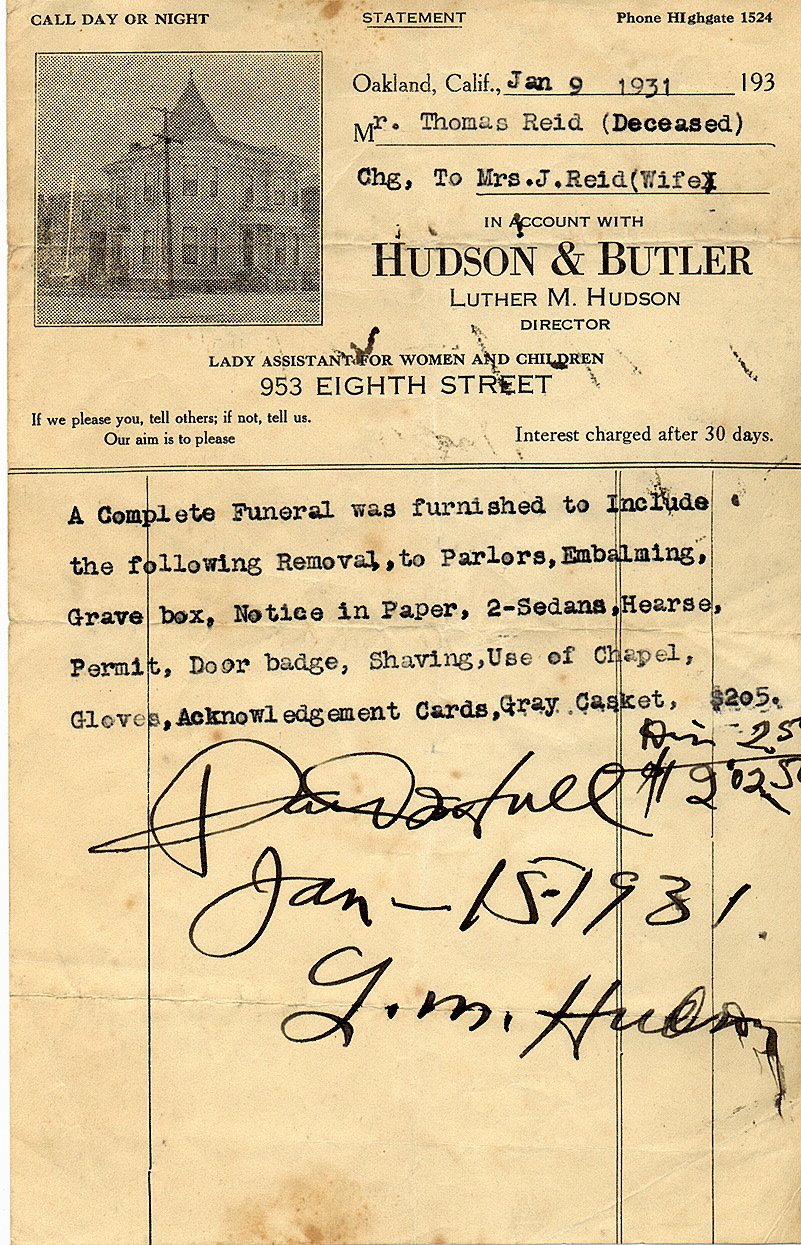 CALL DAY OR NIGHT STATEMENT Phone HIghgate 1524
Oakland, Calif., Jan 9 1931 193
Mr. Thomas Reid (Deceased)
Chg, To Mrs.J.Reid(Wife)
IN ACCOUNT WITH
HUDSON & BUTLER
LUTHER M. HUDSON
DIRECTOR
LADY ASSISTANT FOR WOMEN AND CHILDREN
953 EIGHTH STREET
If we please you, tell others; if not, tell us.
Our aim is to please
Interest charged after 30 days.
A Complete Funeral was furnished to Include
the following Removal,to Parlors,Embalming,
Grave box, Notice in Paper, 2-Sedans,Hearse,
Permit, Door badge, Shaving,Use of Chapel,
Gloves,Acknowledgement Cards,Gray Casket, $205.
Dis 250
$202.50
Paid In full
Jan - 15-1931
L. M. Hudson